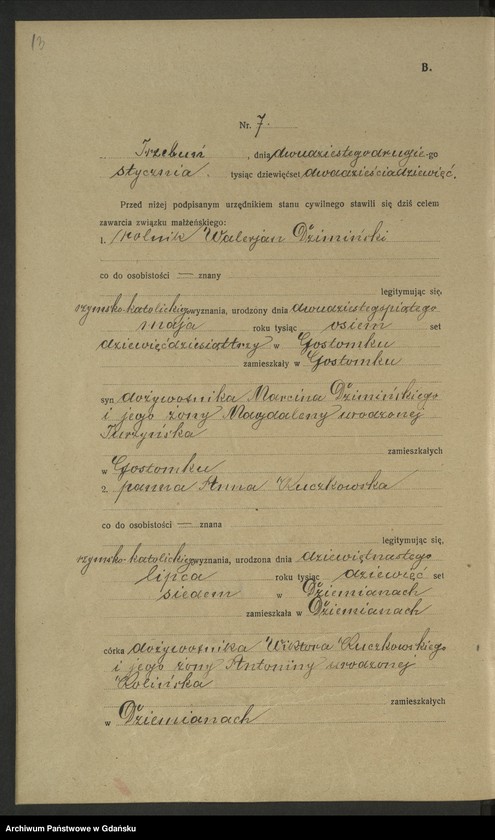 13
B.
Nr. 7.
Trzebuń, dnia dwudziestego drugie-go
stycznia. tysiąc dziewięćset dwadzieścia dziewięć.
Przed niżej podpisanym urzędnikiem stanu cywilnego stawili się dziś celem
zawarcia związku małżeńskiego:
1. rolnik Walerjan Dżimiński
co do osobistości — znany
legitymując się,
rzymsko-katolickiego wyznania, urodzony dnia dwudziestego piątego
maja roku tysiąc osiem set
dziewięćdziesiąt trzy w Gostomku
zamieszkały w Gostomku
syn dożywosnika Marcina Dżimińskiego
i jego żony Magdaleny urodzonej
Turzyńska
zamieszkałych
w Gostomku
2. panna Anna Kuczkowska
co do osobistości — znana
legitymując się,
rzymsko-katolickiego wyznania, urodzona dnia dziewiętnastego
lipca roku tysiąc dziewięć set
siedem w Dziemianach
zamieszkała w Dziemianach
córka dożywosnika Wiktora Kuczkowskiego
i jego żony Antoniny urodzonej
Kolińska
zamieszkałych
w Dziemianach
Archiwum Państwowe w Gdańsku